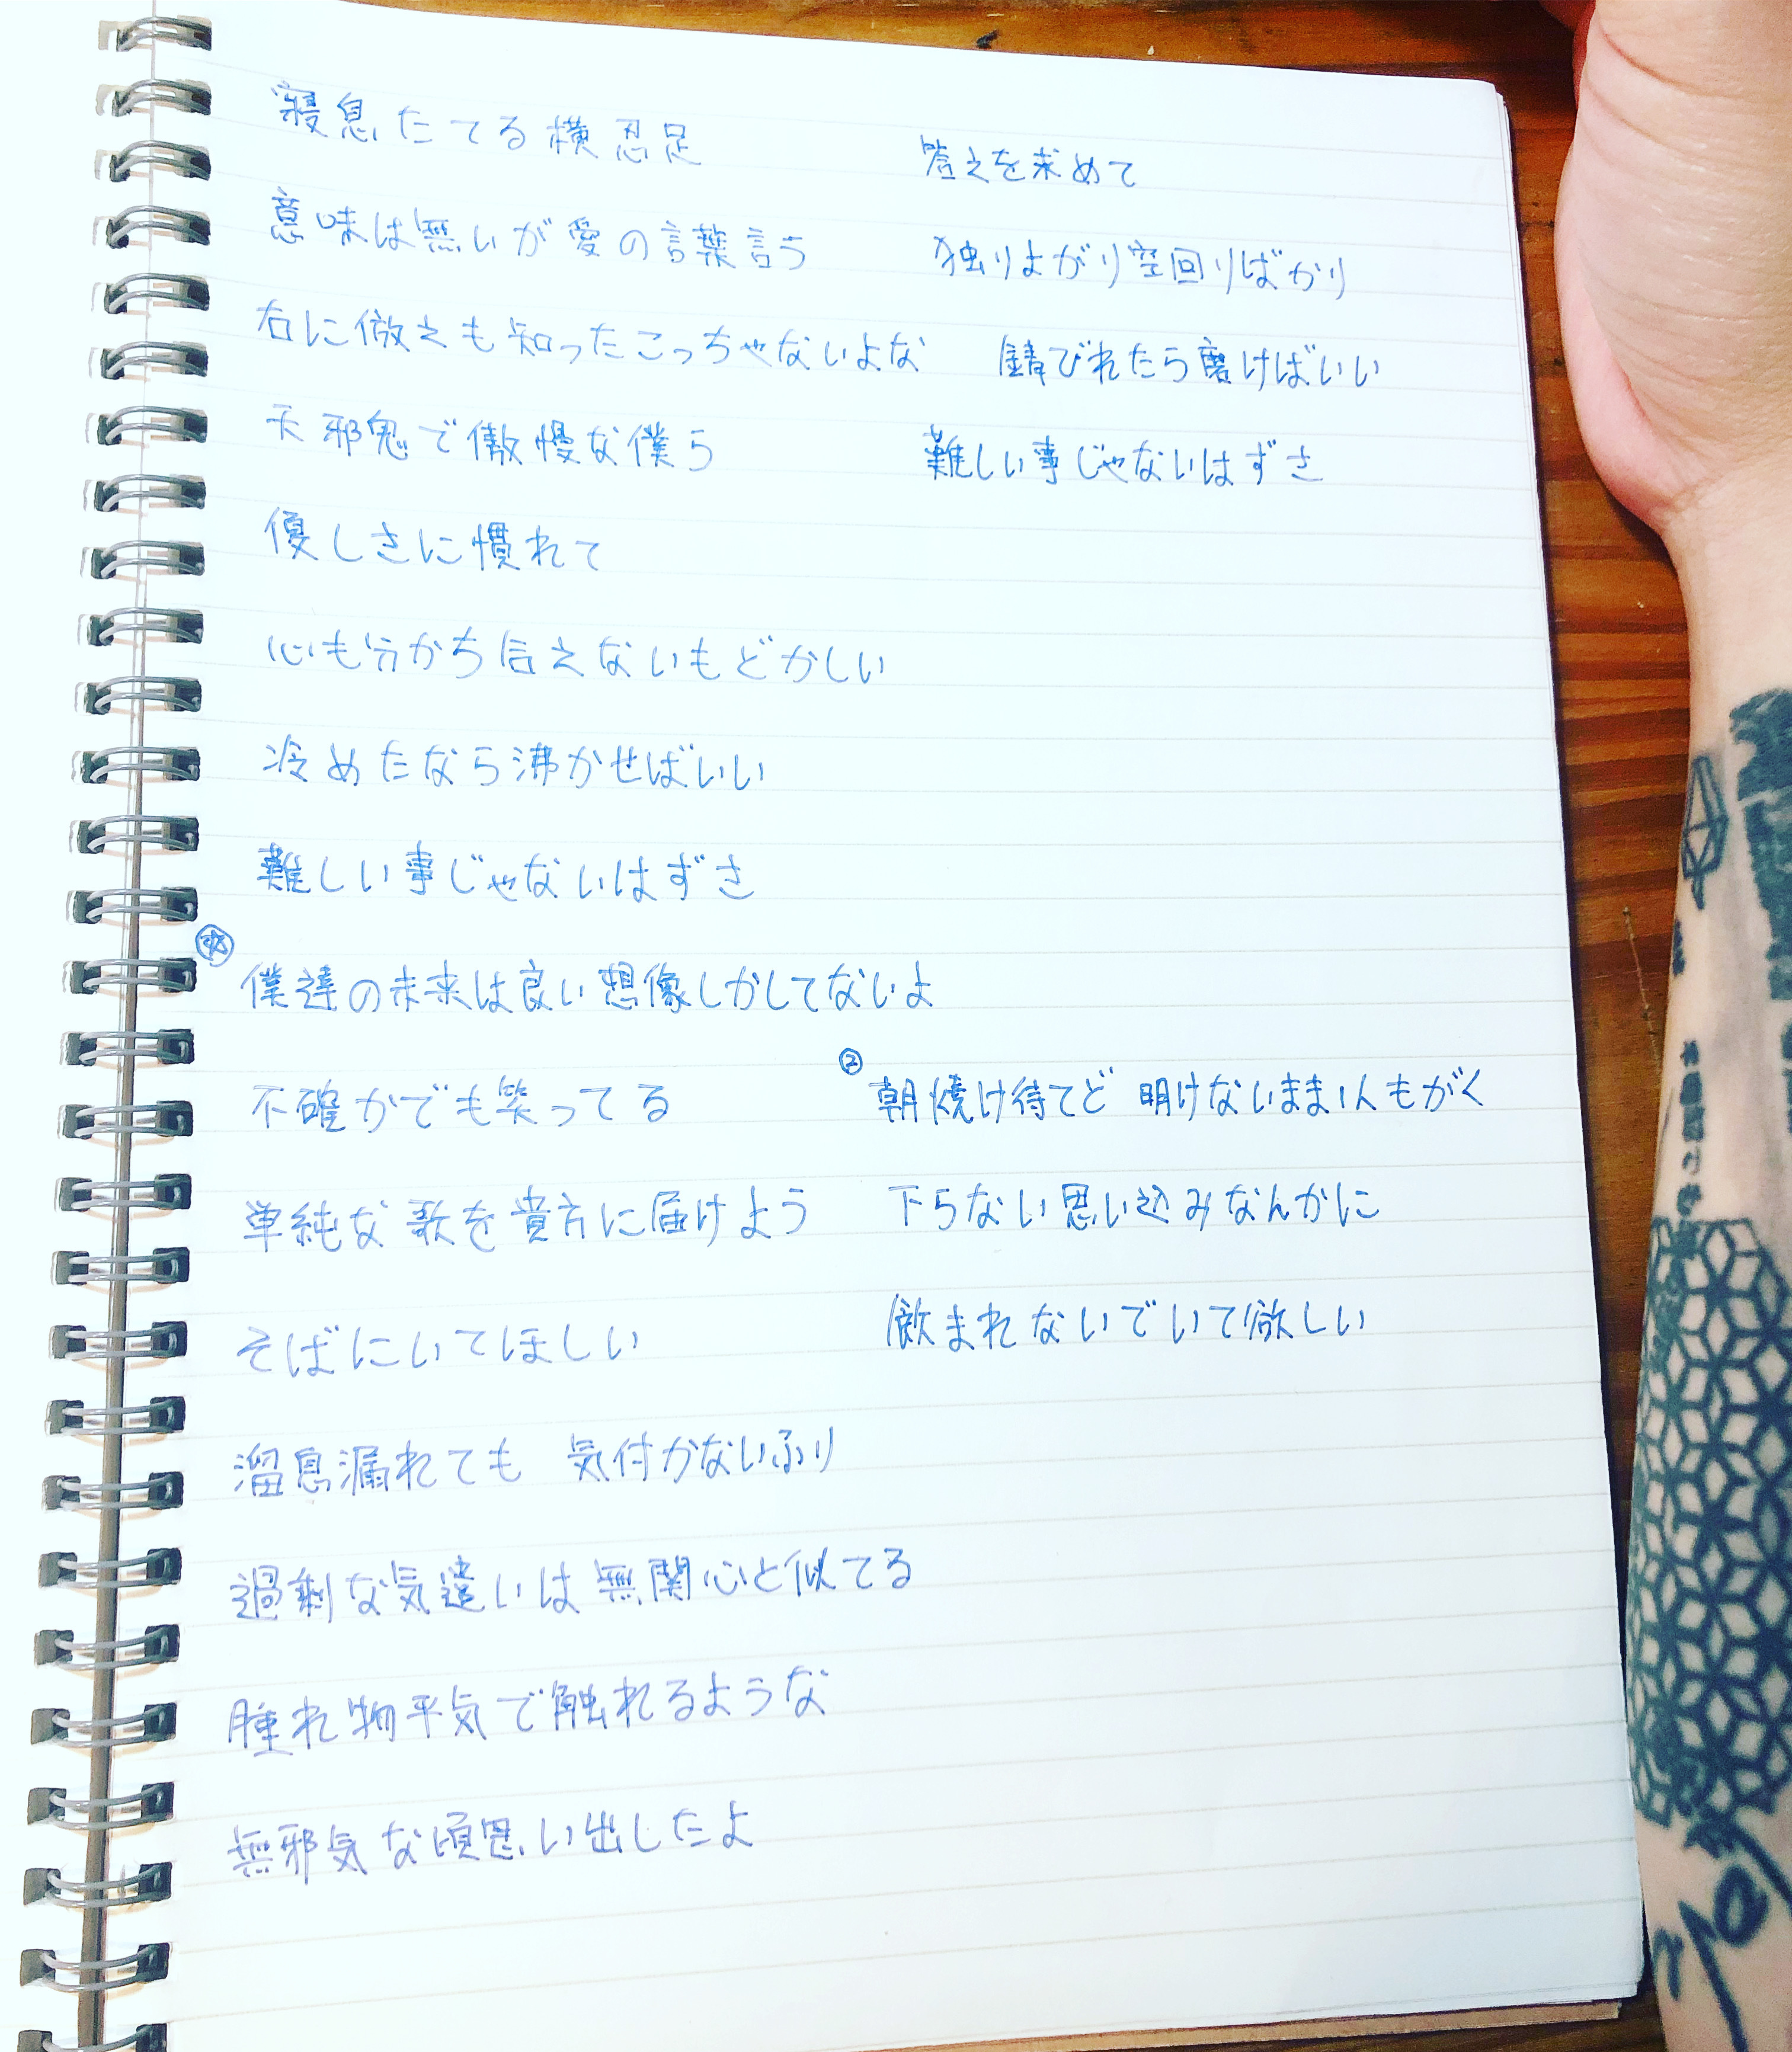 寝息たてる横忍足
意味は無いが愛の言葉言う
右に倣えも知ったこっちゃないよな
天邪鬼で傲慢な僕ら
優しさに慣れて
心も分かち合えないもどかしい
冷めたなら沸かせばいい
難しい事じゃないはずさ
僕達の未来は良い想像しかしてないよ
不確かでも笑ってる
単純な歌を貴方に届けよう
そばにいてほしい
溜息漏れても 気付かないふり
過剰な気遣いは無関心と似てる
腫れ物平気で触れるような
無邪気な頃思い出したよ
答えを求めて
独りよがり空回りばかり
錆びれたら磨けばいい
難しい事じゃないはずさ
② 朝焼け待てど 明けないまま1人もがく
下らない思い込みなんかに
飲まれないでいて欲しい